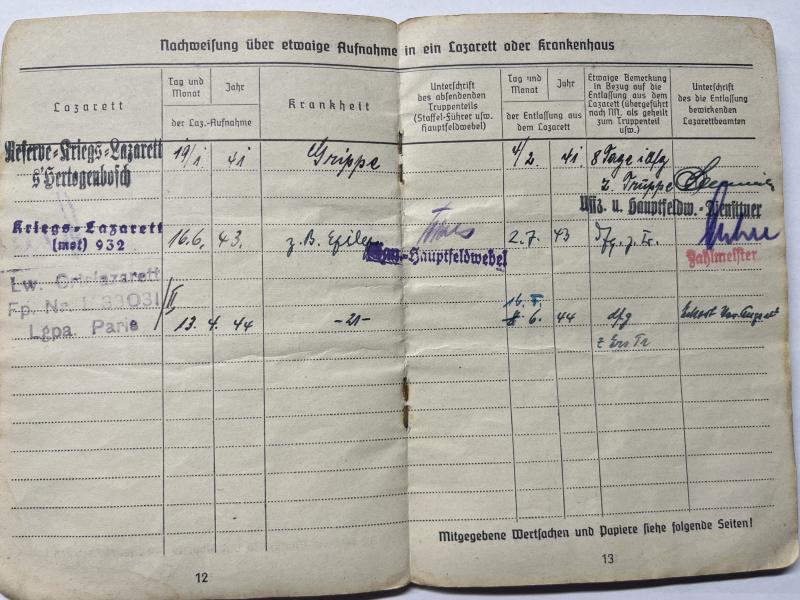 Nachweisung über etwaige Aufnahme in ein Lazarett oder Krankenhaus
Lazarett
Tag und Monat
Jahr
der Laz.-Aufnahme
Krankheit
Unterschrift
des absendenden
Truppenteils
(Staffel-Führer usw.
Hauptfeldwebel)
Tag und Monat
Jahr
der Entlassung aus
dem Lazarett
Etwaige Bemerkung
in Bezug auf die
Entlassung aus dem
Lazarett (übergeführt
nach NN, als geheilt
zum Truppenteil
usw.)
Unterschrift
des die Entlassung
bewirkenden
Lazarettbeamten
Reserve-Kriegs-Lazarett
s'Hertogenbosch
19/1 41 Grippe 4/2. 41. 8 Tage
z. Truppe
Uffz. u. Hauptfeldw.-Diensttuer
Kriegs-Lazarett
(mot) 932
16.6. 43. z. B. 2.7. 43 dfg. z. Tr.
Hauptfeldwebel
Zahlmeister
Lw. Ortslazarett
Fp. Nr. L 33031
Lgpa. Paris
II
13. 4. 44 -21- 6. 44 dfg
z Ers Tr
Mitgegebene Wertsachen und Papiere siehe folgende Seiten!
12
13